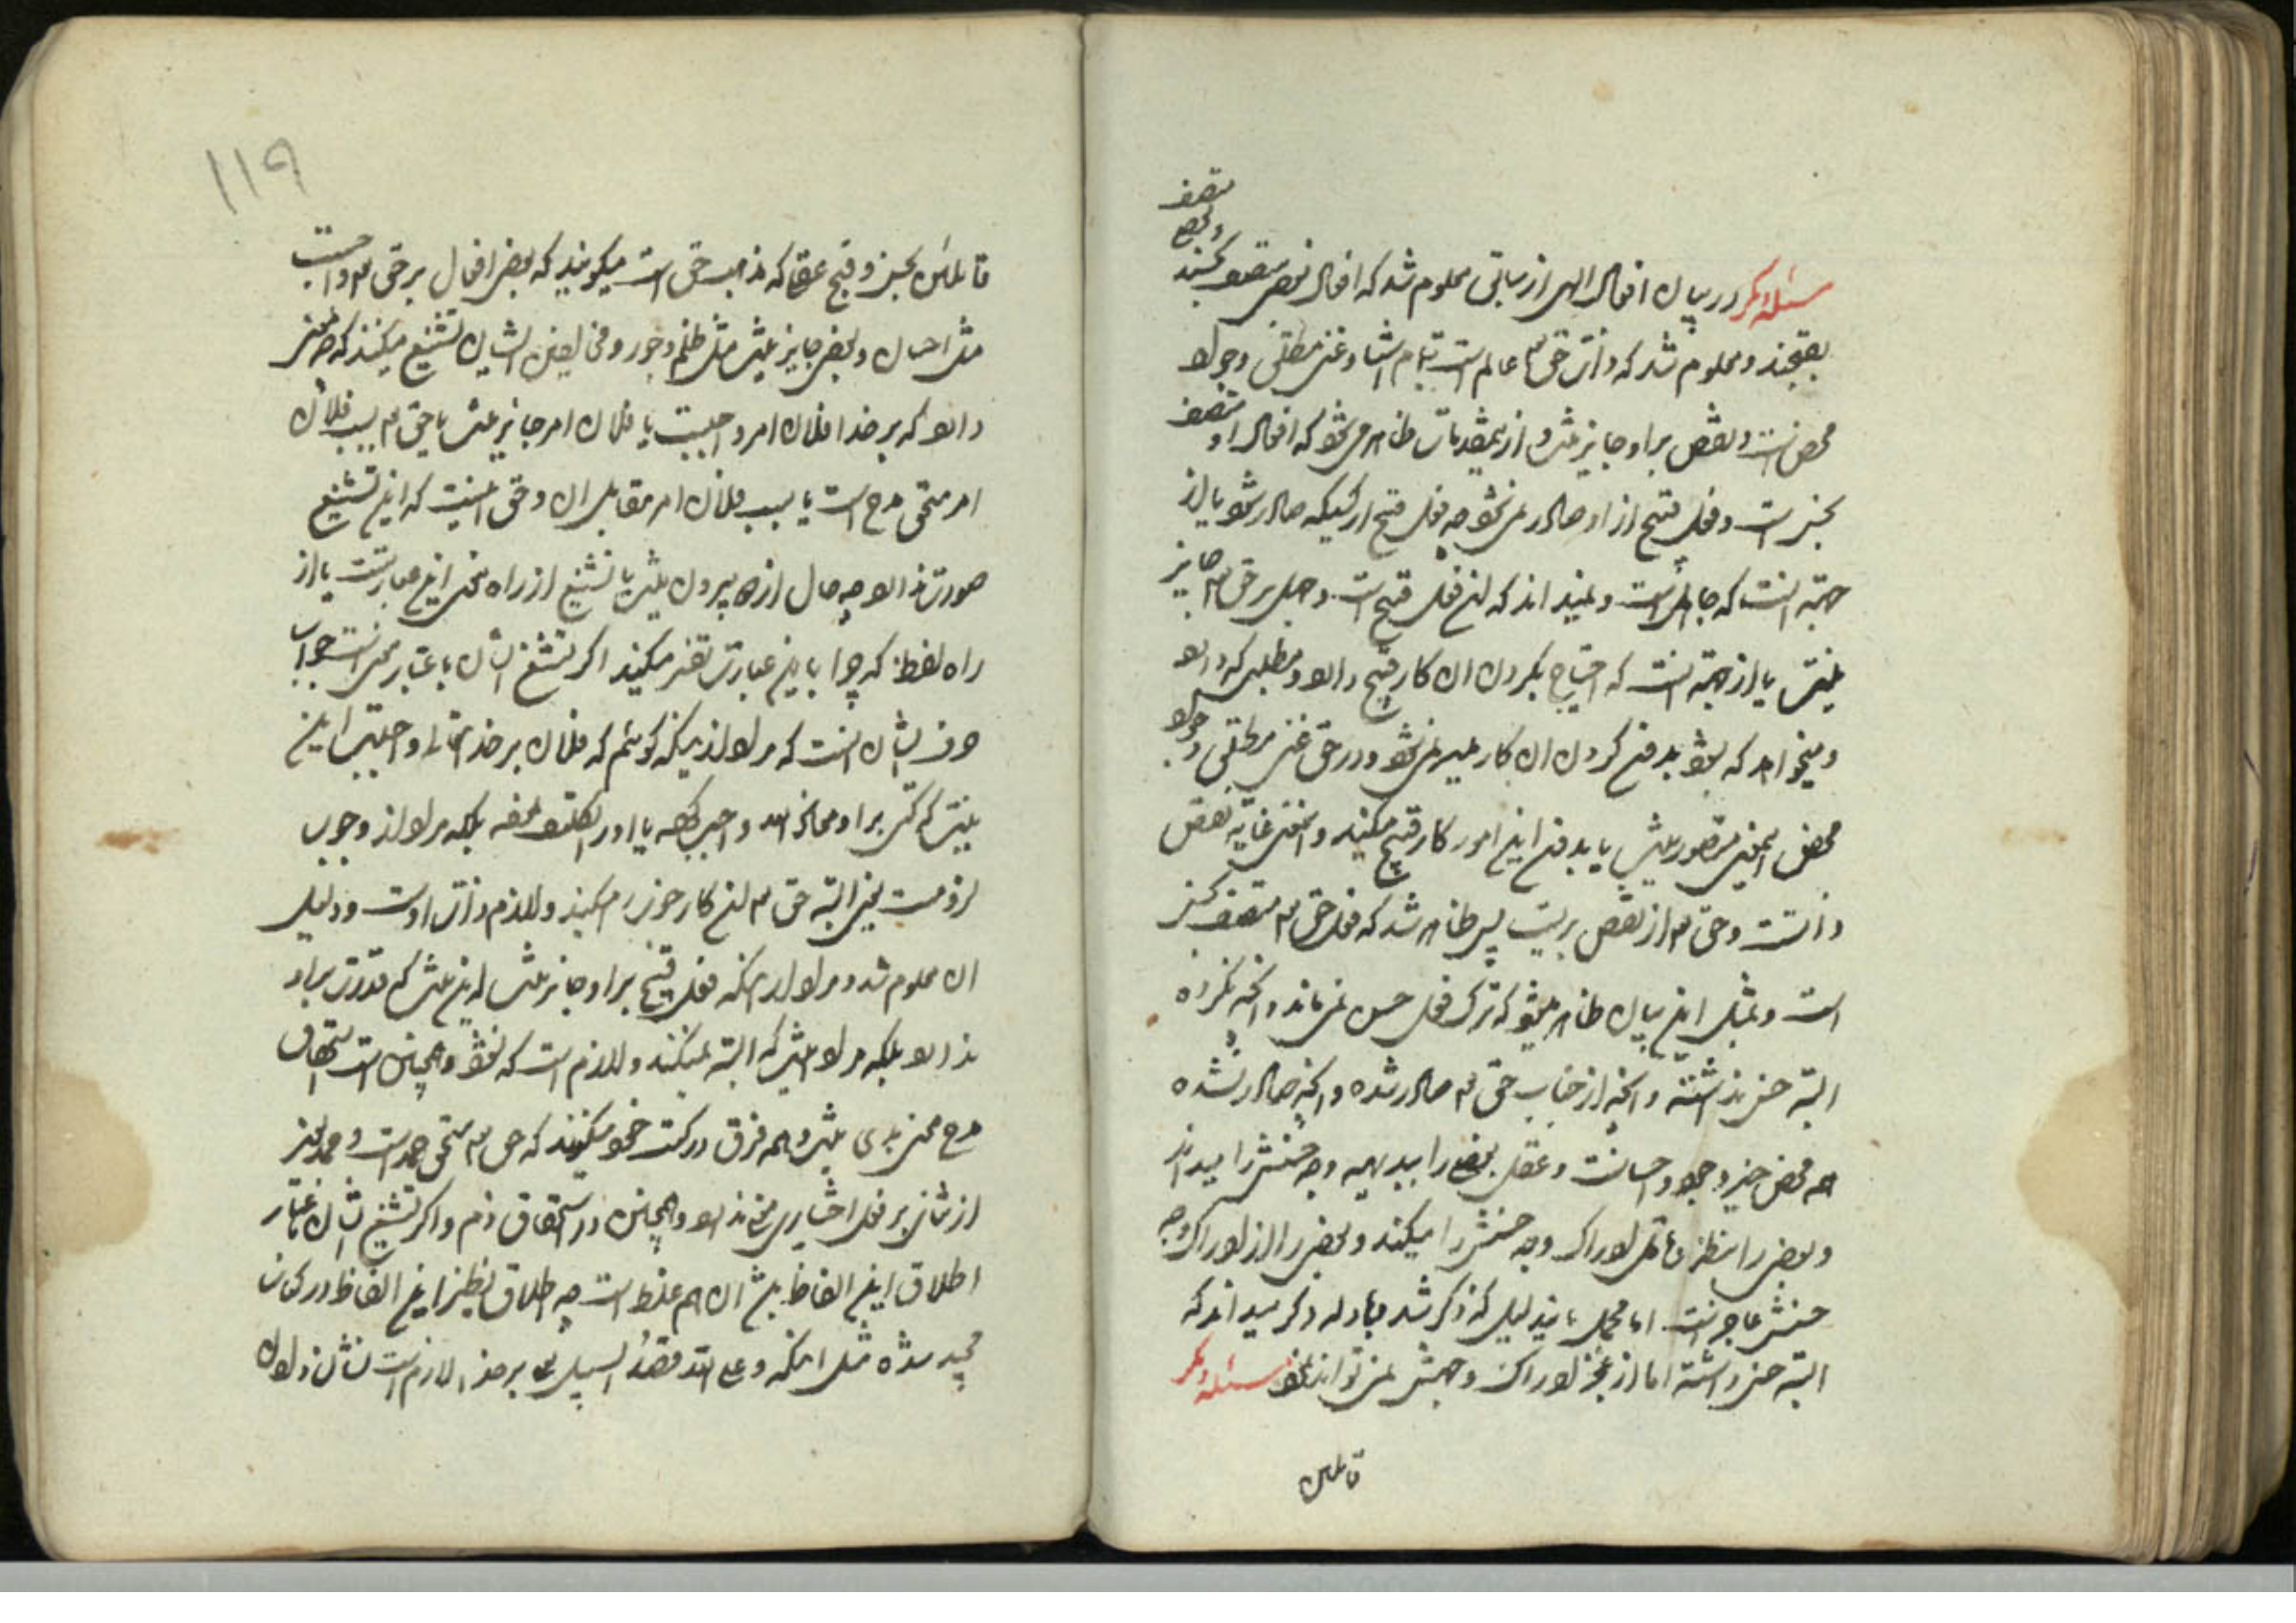 مسئله دیگر در بیان افعال الهی از سابق معلوم شد که افعال بعضی متصف بحسنند و بعضی متصف
بقبحند و معلوم شد که ذات حق تع عالم است بتمام اشیا و غنی مطلق و جواد
محض است و نقص بر او جایز نیست و از این مقدمات ظاهر می شود که افعال او متصف
بحسن است و فعل قبیح از او صادر نمی شود چه فعل قبیح از کسیکه صادر شود یا از
جهة انست که جاهل است و نمیداند که این فعل قبیح است و جهل بر حق تع جایز
نیست یا از جهة انست که احتیاج بکردن ان کار قبیح دارد و مطلبی که دارد
و میخواهد که بشود بدون کردن ان کار میسر نمی شود و در حق غنی مطلق و جواد
محض اینمعنی متصور نیست یا بدون این امور کار قبیح میکند و اینمعنی غایة نقص
ذاتست و حق تع از نقص بریست پس ظاهر شد که فعل حق تع متصف بحسن
است و بمثل این بیان ظاهر میشود که ترک فعل حسن نمی نماید و انچه نکرده
البته حسن نداشته و انچه از جناب حق تع صادر شده و انچه صادر نشده
همه محض خیر و جود و احسانست و عقل بعضی را ببدیهه وجه حسنش را میداند
و بعضی را بنظر و تامل ادراک وجه حسنش را میکند و بعضی را از ادراک وجه
حسنش عاجز است اما مجمل باین دلیل که ذکر شد و بادله دیگر میداند که
البته حسن داشته اما از عجز ادراک وجهش نمی تواند نمود مسئله دیگر
قائلین
۱۱۹
قائلین بحسن و قبح عقلی که مذهب حق است میگویند که بعضی افعال بر حق تع واجبست
مثل احسان و بعضی جایز نیست مثل ظلم و جور و مخالفین ایشان تشنیع میکنند که چه معنی
دارد که بر خدا فلان امر واجبست یا فلان امر جایز نیست یا حق تع بسبب فلان
امر مستحق مدح است یا بسبب فلان امر مقابل ان و حق اینست که این تشنیع
صورت ندارد چه حال از دو بیرون نیست یا تشنیع از راه معنی این عبارتست یا از
راه لفظ که چرا باین عبارت تعبیر میکنید اگر تشنیع ایشان باعتبار معنی است جواب
حرف ایشان انست که مراد از اینکه گوئیم که فلان بر خدایتعالی واجبست این
نیست که کسی بر او معاذ الله واجب کرده یا او را مکلف ساخته بلکه مراد از وجوب
لزومست یعنی البته حق تع این کار خوب را میکند و لازم ذات اوست و دلیل
ان معلوم شد و مراد از اینکه فعل قبیح بر او جایز نیست این نیست که قدرت بر او
ندارد بلکه مراد اینست که البته نمیکند و لازم است که نشود و همچنین است استحقاق
مدح معنی بدی نیست و همه فرق در کتب خود میگویند که حق تع مستحق حمد است و حمد بغیر
از ثنا بر فعل اختیاری معنی ندارد و همچنین در استحقاق ذم و اگر تشنیع ایشان باعتبار
اطلاق این الفاظ باشد ان هم غلط است چه اطلاق نظیر این الفاظ در کلام
مجید شده مثل اینکه و علی الله قصد السبیل یعنی بر خدا لازم است نشان دادن